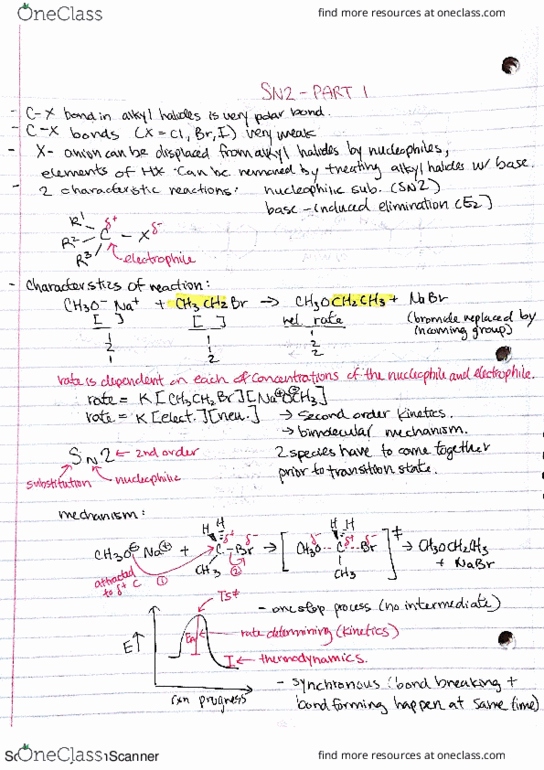 OneClass
find more resources at oneclass.com
SN2 - PART 1
- C-X bond in alkyl halides is very polar bond.
- C-X bonds (X = Cl, Br, I) very weak
- X- anion can be displaced from alkyl halides by nucleophiles,
elements of HX can be removed by treating alkyl halides w/ base.
- 2 characteristic reactions: nucleophilic sub. (SN2)
base-induced elimination (E2)
R1 δ+ δ-
R2 - C - X
R3
electrophile
- Characteristics of reaction:
CH3O- Na+ + CH3CH2Br → CH3OCH2CH3 + NaBr
[ ] [ ] rel rate (bromide replaced by
incoming group)
1 1 1
2 1 2
2
rate is dependent on each of concentrations of the nucleophile and electrophile.
rate = K [CH3CH2Br][Na⊕ ⊖OCH3]
rate = K [elect.][neu.] → second order kinetics.
→ bimolecular mechanism.
SN2 ← 2nd order 2 species have to come together
substitution nucleophile prior to transition state.
mechanism:
H H H H
CH3O⊖ Na⊕ + C δ+ - Br δ- → [CH3O δ- ... C δ+ ... Br δ-]‡ → CH3OCH2CH3
+ NaBr
CH3 CH3
attracted
to δ+ C ① ②
TS‡
- one step process (no intermediate)
E↑ Ea ← rate determining (kinetics)
I ← thermodynamics.
rxn progress
- synchronous (bond breaking +
bond forming happen at same time)
OneClass
Scanner
find more resources at oneclass.com